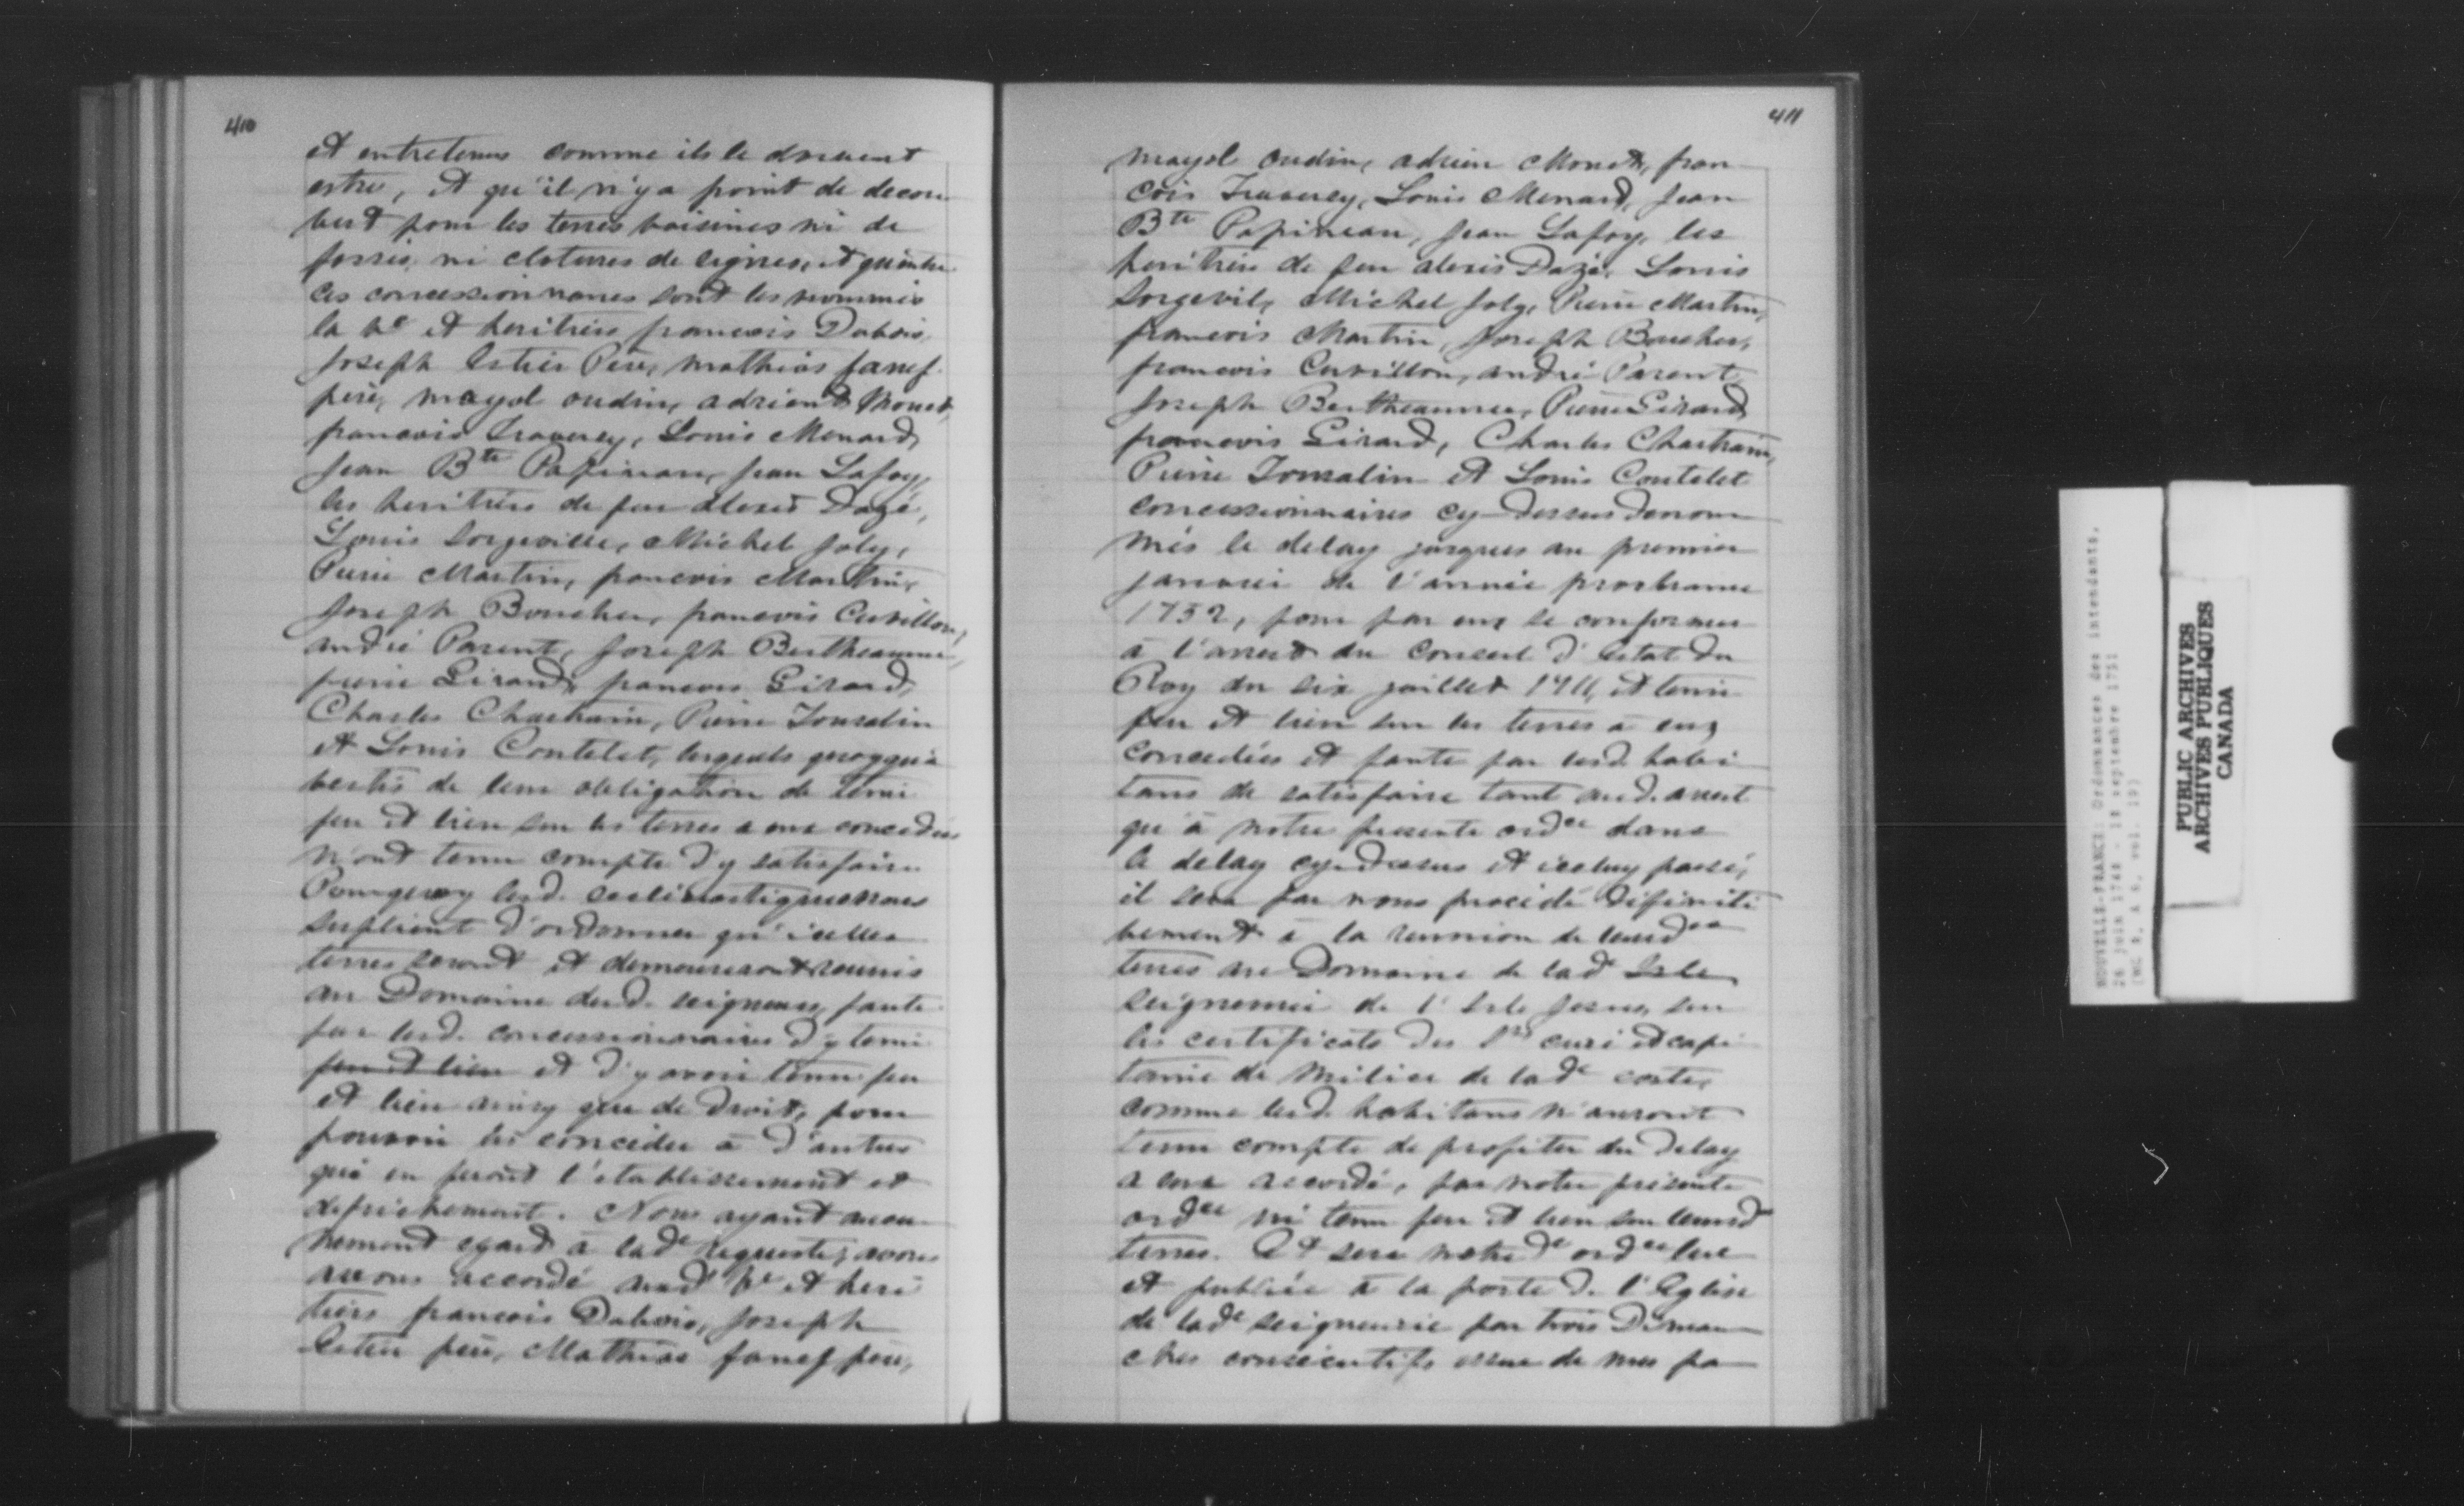 410
et entretenus comme ils le doivent
estre, et qu'il n'y a point de decou
vert pour les terres voisines ni de
fossés, ni clotures de lignes, et qu'entre
les concessionnaires sont les nommés
la Ve et heritiers francois Dubois,
Joseph Estier Pere, mathias fanef
pere, mayol oudin, adrien Monet,
francois Traversy, Louis Menard,
Jean Bte Papineau, Jean Lafoy,
les heritiers de feu alexis Dazé,
Louis Sorgeville, Michel Joly,
Pierre Martin, francois Martin,
Joseph Boucher, francois Cuvillon,
andré Parent, Joseph Bertheaume,
pierre Girard, francois Girard,
Charles Chartrain, Pierre Tourolin
et Louis Contelet, lesquels quoyqu'a
vertis de leur obligation de tenir
feu et lieu sur les terres a eux concedées
n'ont tenu compte d'y satisfaire
Pourquoy lesd. ecclesiastiques nous
suplient d'ordonner qu'icelles
terres seront et demeureront reunis
au Domaine desd. seigneurs, faute
par lesd. concessionnaires d'y tenir
feu et lieu et d'y avoir tenu feu
et lieu ainsy que de droit, pour
pouvoir les conceder à d'autres
qui en feront l'etablissement et
defrichement. Nous ayant aucu
nement egard à lade requeste; avons
avons accordé auxd Ve et heri
tiers francois Dubois, Joseph
Estier pere, Mathias fanef pere,
411
mayol oudin, adrien Monet, fran
cois Traversy, Louis Menard, Jean
Bte Papineau, Jean Lafoy, les
heritiers de feu alexis Dazé, Louis
Sorgevil, Michel Joly, Pierre Martin,
francois Martin, Joseph Boucher,
francois Cuvillon, andré Parent,
Joseph Bertheaume, Pierre Girard,
francois Girard, Charles Chartrain,
Pierre Tomalin et Louis Contelet
concessionnaires cy-dessus denom
més le delay jusques au premier
janvier de l'année prochaine
1752, pour par eux se conformer
à l'arrest du Conseil d'Estat du
Roy du six juillet 1711, et tenir
feu et lieu sur les terres à eux
concedées et faute par lesd. habi
tans de satisfaire tant aud. arrest
qu'à notre presente ordce dans
le delay cy-dessus et iceluy passé,
il sera par nous procédé difiniti
vement à la reunion de leursdes
terres au Domaine de lade Isle
seigneurie de l'Isle Jesus, sur
les certificats des Srs curé et capi
taine de milice de lade coste,
comme lesd. habitans n'auront
tenu compte de profiter du delay
a eux accordé, par notre présente
ordce ni tenu feu et lieu sur leursd
terres. Et sera notre de ordce lue
et publiée à la porte de l'Eglise
de lade seigneurie par trois Diman
ches consecutifs issue de mes pa
NOUVELLE-FRANCE: Ordonnances des intendants,
26 juin 1748 - 18 septembre 1751
(MG 8, A 6, vol. 19)
PUBLIC ARCHIVES
ARCHIVES PUBLIQUES
CANADA